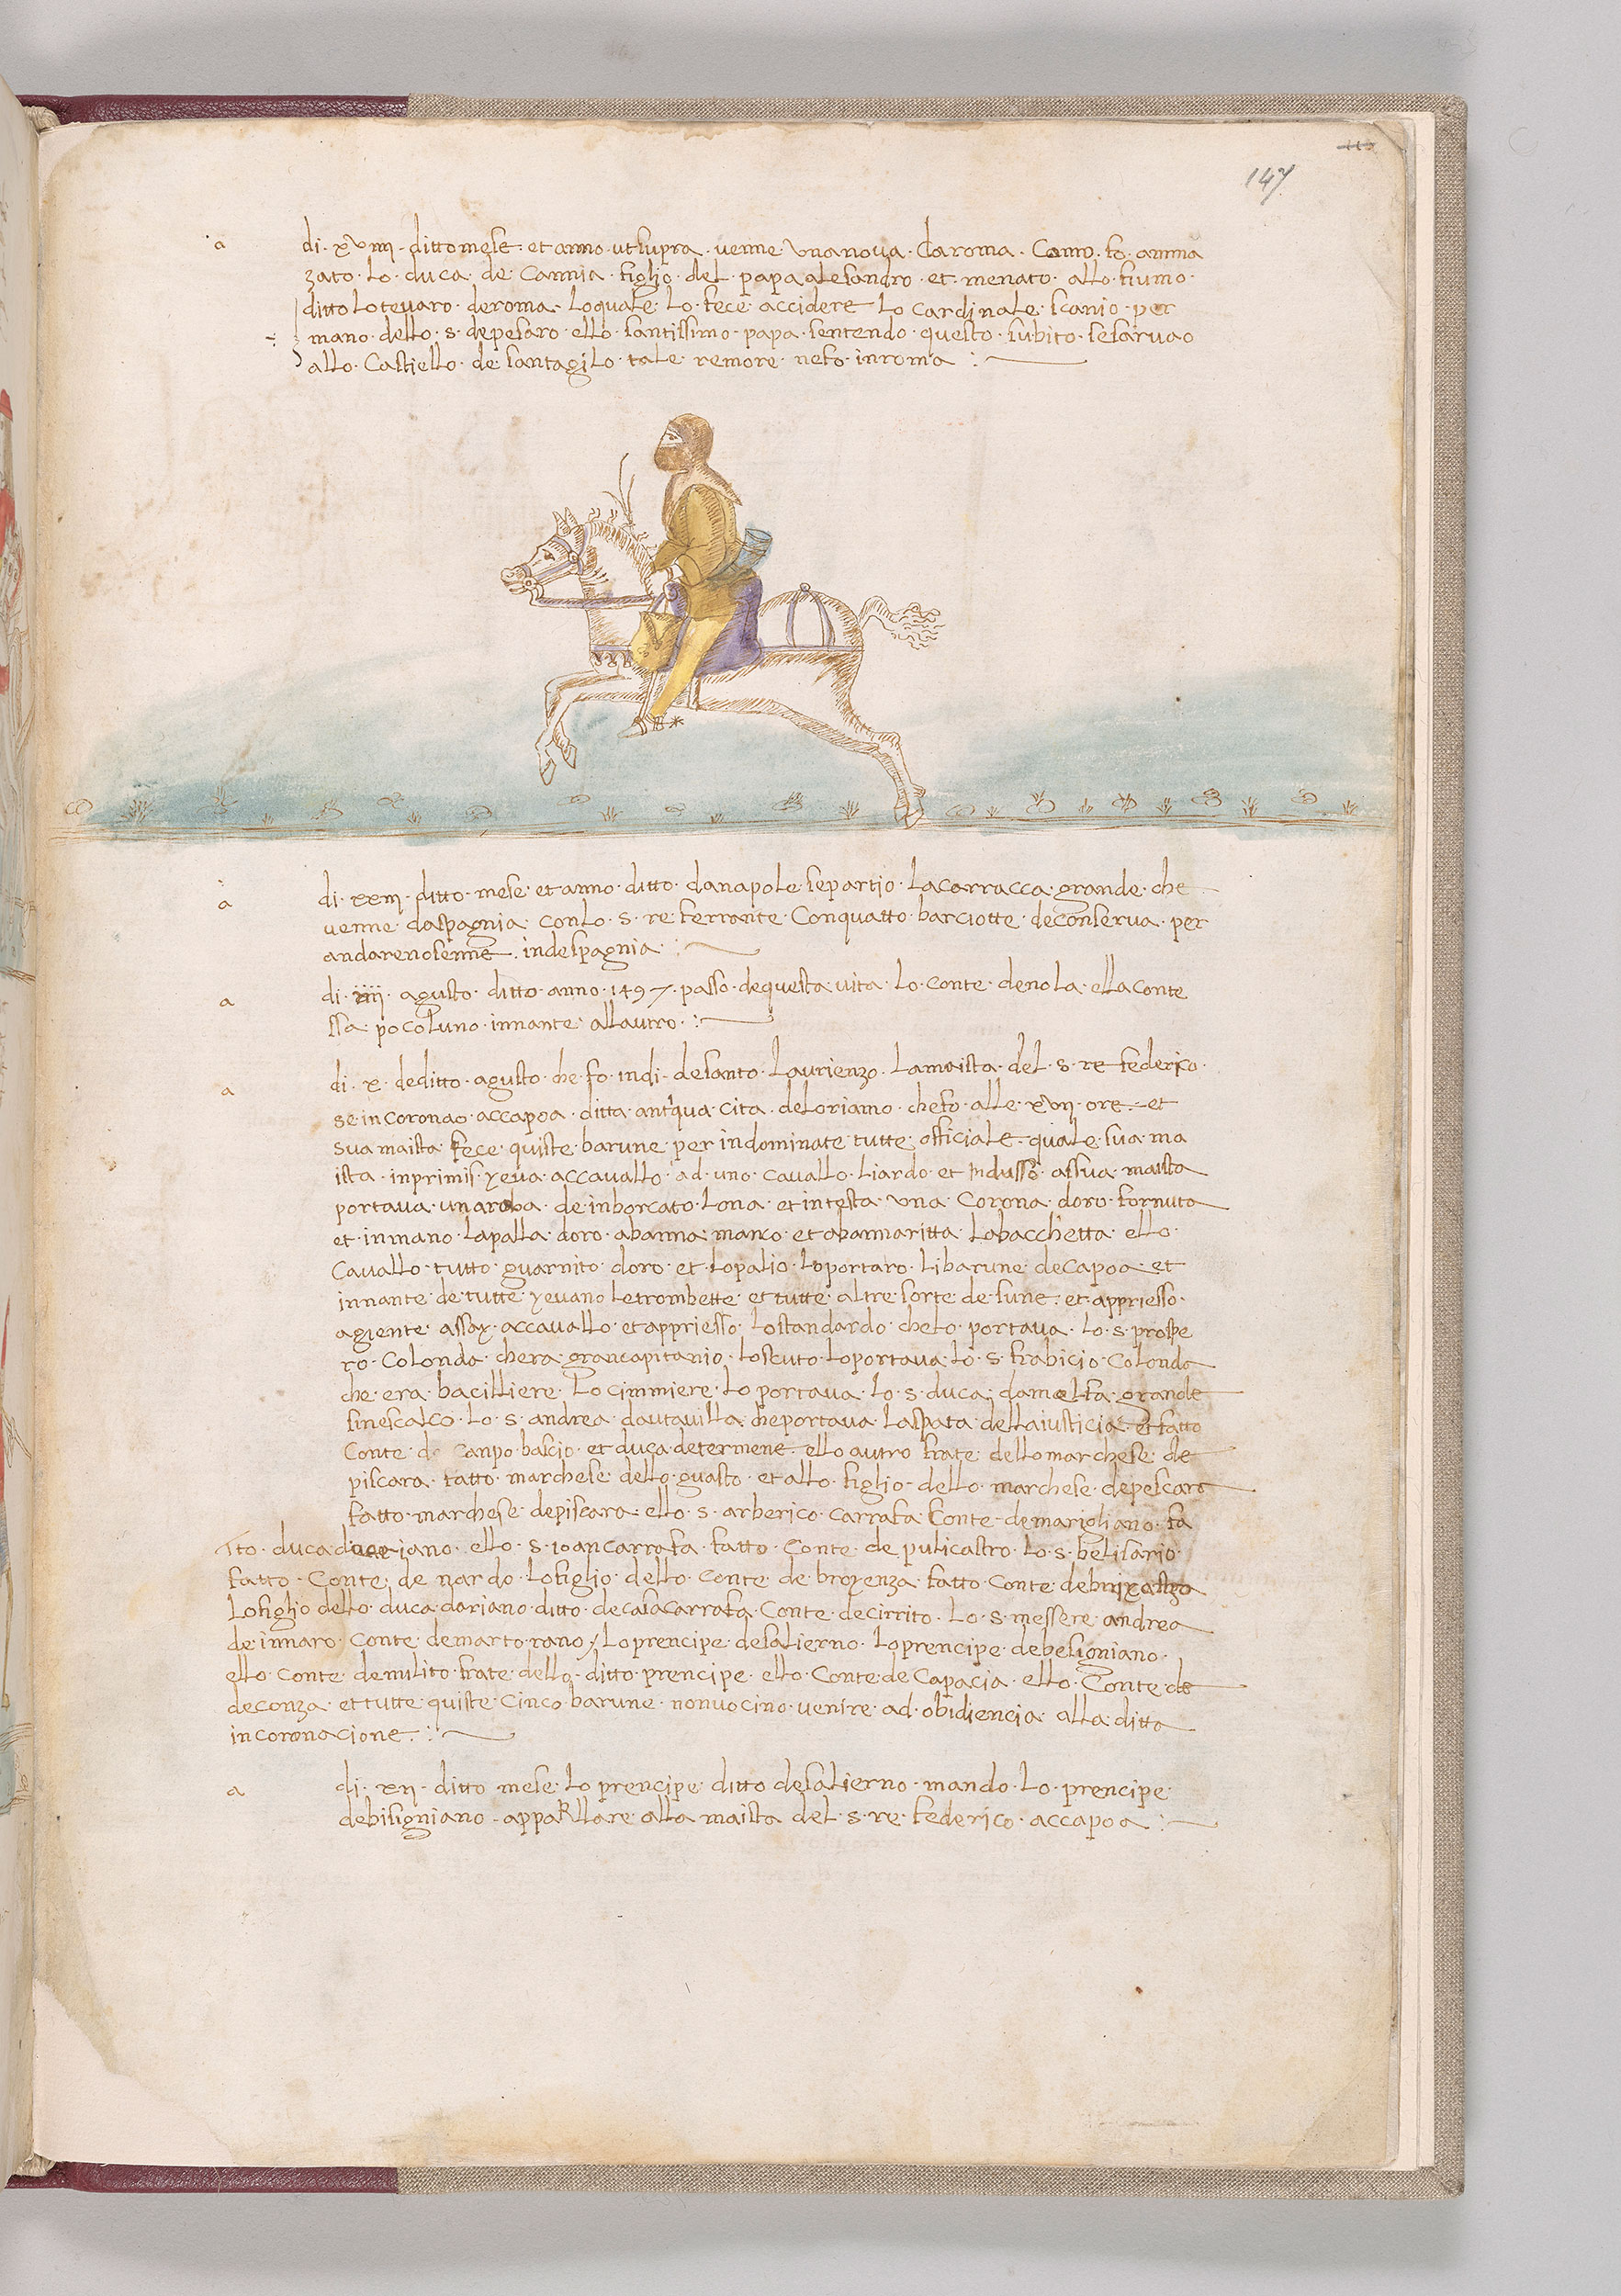 147
a di · xviiii · ditto mese · et anno · ut supra · venne · una nova · da roma · Como · fo · amma
zato · lo · duca · de · Cannia · figlio · del · papa alesandro · et · menato · allo · fiumo ·
ditto lo tevaro · de roma · lo quale · lo · fece · accidere · lo cardinale · scanio · per
mano · dello · s · de pesaro · ello · santissimo · papa · sentendo · questo · subito · se sarvao
allo · Castiello · de santagilo · tale · remore · ne fo · in roma :
a di · xxiii · ditto · mese · et anno · ditto · da napole · se partio · la carracca · grande · che
venne · da spagnia · con lo · s · re ferrante · Con quatto · barciotte · de conserva · per
andarenosenne · in de spagnia :
a di · iiii · agusto · ditto · anno · 1497 · passo · de questa vita · lo · conte · de nola · ella conte
ssa · poco luno · innante · allautro :
a di · x · de ditto · agusto · che · fo · in di · de santo · laurienzo · la maista · del · s · re federico ·
se in coronao · accapoa · ditta · antiqua · cita · de loriamo · che fo · alle · xvii · ore · et
sua maista · fece · quiste · barune · per indominate · tutte · officiale · quale · sua · ma
ista · inprimis · yeva · accavallo · ad · uno · cavallo · liardo · et indusso · assua · maista
portava · una roba · de inborcato · lona · et in testa · una · Corona · doro · fornuta
et · in mano · la palla · doro · abanna · manco · et abannaritta · la bacchetta · ello ·
Cavallo · tutto · guarnito · doro · et · lo palio · lo portaro · li barune · de Capoa · et
innante · de tutte · yevano le trombette · et tutte · altre · sorte · de · sune · et · appriesso ·
agiente · assay · accavallo · et appriesso · lo standardo · che lo · portava · lo · s · prospe
ro · Colonda · chera · gran capitanio · lo scuto · lo portava · lo · s · frabicio · Colonda
che · era · bacilliere · Lo cimmiere · lo portava · lo · s · duca · damelfa · grande
sinescalco · lo · s · andrea · dautavilla · che portava · la spata · della iusticia · et fatto
Conte · de Canpo · bascio · et duca · de termene · ello autro · frate · dello marchese · de
piscara · fatto · marchese · dello · guasto · et allo · figlio · dello · marchese · de pescara
fatto · marchese · de piscara · ello · s · arberico · carrafa · Conte · de marigliano · fa
tto · duca dariano · ello · s · ioan carrafa · fatto · Conte · de pulicastro · lo · s · belisario ·
fatto · Conte · de nardo · lo figlio · dello · conte · de broyenza · fatto · conte
lo figlio dello · duca · dariano · ditto · de casa carrafa · Conte · de cirrito · Lo · s · messere · andrea
de innaro · Conte · de marto rano / lo prencipe · de salierno · lo prencipe · de besigniano ·
ello · Conte · de milito · frate · dello · ditto · prencipe · ello · Conte · de Capacia · ello · Conte · de
de conza · et tutte · quiste · Cinco · barune · non vocino · venire · ad · obidiencia · alla · ditta
incoronacione :
a di · xii · ditto mese · lo prencipe · ditto de salierno · mando · lo · prencipe ·
de bisigniano · apparllare · alla maista · del · s · re · federico · accapoa :